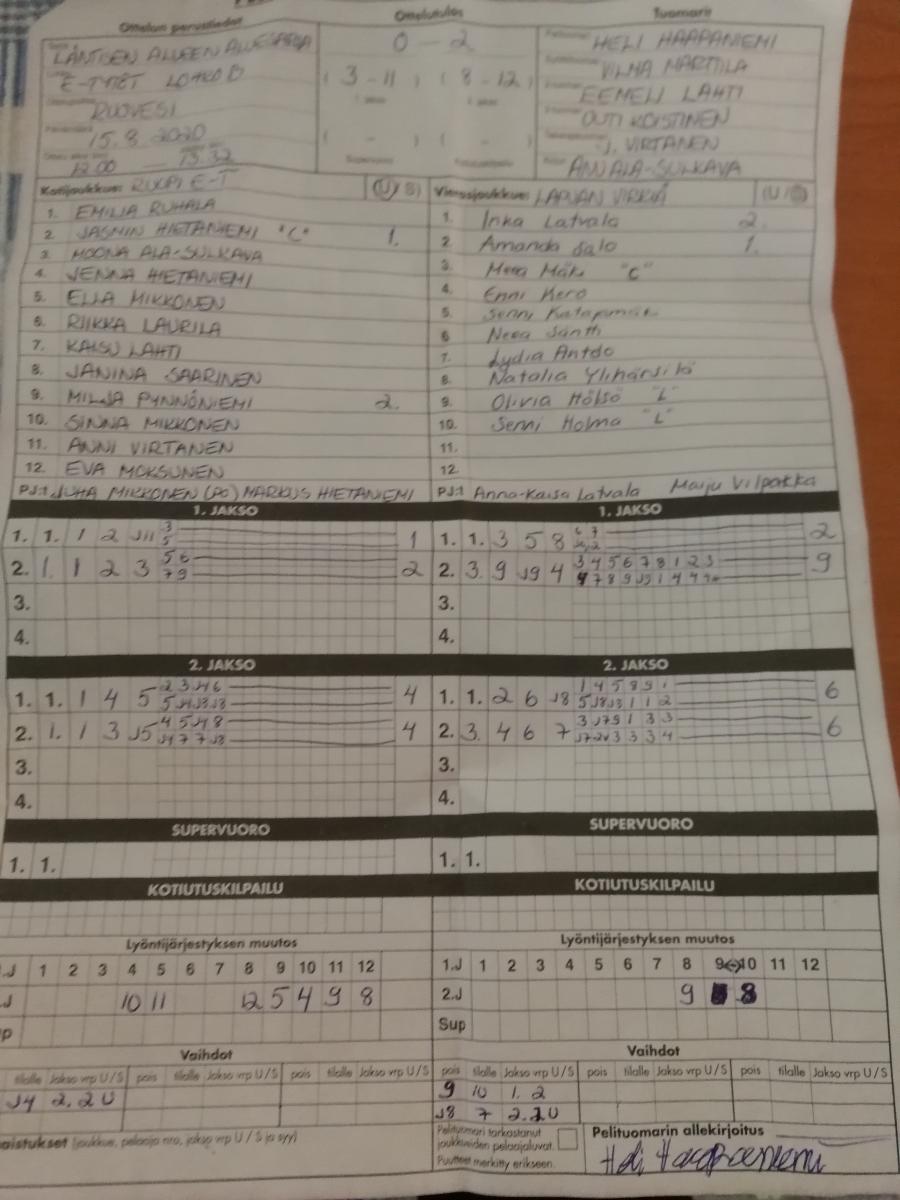 Ottelun perustiedot
Ottelutulos
Tuomarit
LÄNTISEN ALUEEN ALUESARJA
E-TYTÖT LOHKO D
RUOVESI
15.8.2020
12.00 — 13.32
0 - 2
( 3 - 11 ) ( 8 - 12 )
( - ) ( - )
HELI HAAPANIEMI
VILMA MARTTILA
EEMELI LAHTI
OUTI KOISTINEN
J. VIRTANEN
ANN ALA-SULKAVA
Kotijoukkue: RUOPI E-T (U/S)
1. EMILIA RUHALA
2. JASMIN HIETANIEMI "C" 1.
3. MOONA ALA-SULKAVA
4. JENNA HIETANIEMI
5. ELLA MIKKONEN
6. RIIKKA LAURILA
7. KAISU LAHTI
8. JANINA SAARINEN
9. MILJA PYNNÖNIEMI 2.
10. SINNA MIKKONEN
11. ANNI VIRTANEN
12. EVA MOKSUNEN
PJ:t JUHA MIKKONEN (PJ) MARKUS HIETANIEMI
Vierasjoukkue: LAPUAN VIRKIÄ (U/S)
1. Inka Latvala 2.
2. Amanda Salo 1.
3. Meea Mäki "C"
4. Enni Kero
5. Senni
6. Neea Säntti
7. Lydia
8. Natalia Ylihärsilä
9. Olivia Hölsö "L"
10. Senni Holma "L"
11.
12.
PJ:t Anna-Kaisa Latvala Maiju
1. JAKSO
1. 1. 1 2 J11 3 1
5
2. 1. 1 2 3 5 6 2
7 9
3.
4.
1. JAKSO
1. 1. 3 5 8 6 7 2
2. 3. 9 J9 4 3 4 5 6 7 8 1 2 3 9
7 8 9 J9 1 4 4
3.
4.
2. JAKSO
1. 1. 1 4 5 2 3 J4 6 4
5 J4 J8 J8
2. 1. 1 3 J5 4 5 J4 8 4
J4 7 7 J8
3.
4.
2. JAKSO
1. 1. 2 6 J8 1 4 5 8 9 1 6
5 J8 J8 1 1 2
2. 3. 4 6 7 3 J7 9 1 3 3 6
3 3 3 4
3.
4.
SUPERVUORO
1. 1.
SUPERVUORO
1. 1.
KOTIUTUSKILPAILU
KOTIUTUSKILPAILU
Lyöntijärjestyksen muutos
.J 1 2 3 4 5 6 7 8 9 10 11 12
J 10 11 12 5 4 9 8
p
Lyöntijärjestyksen muutos
1.J 1 2 3 4 5 6 7 8 9 10 11 12
2.J 9 8
Sup
Vaihdot
tilalle Jakso vrp U/S pois tilalle Jakso vrp U/S pois tilalle Jakso vrp U/S
J4 2. 2 U
Vaihdot
pois tilalle Jakso vrp U/S pois tilalle Jakso vrp U/S pois tilalle Jakso vrp U/S
9 10 1. 2
J8 7 2. 2 U
aistukset (joukkue, pelaaja nro, jakso vrp U / S ja syy)
Pelituomari tarkastanut
joukkueiden pelaajaluvat.
Puutteet merkitty erikseen.
Pelituomarin allekirjoitus
Heli Haapaniemi